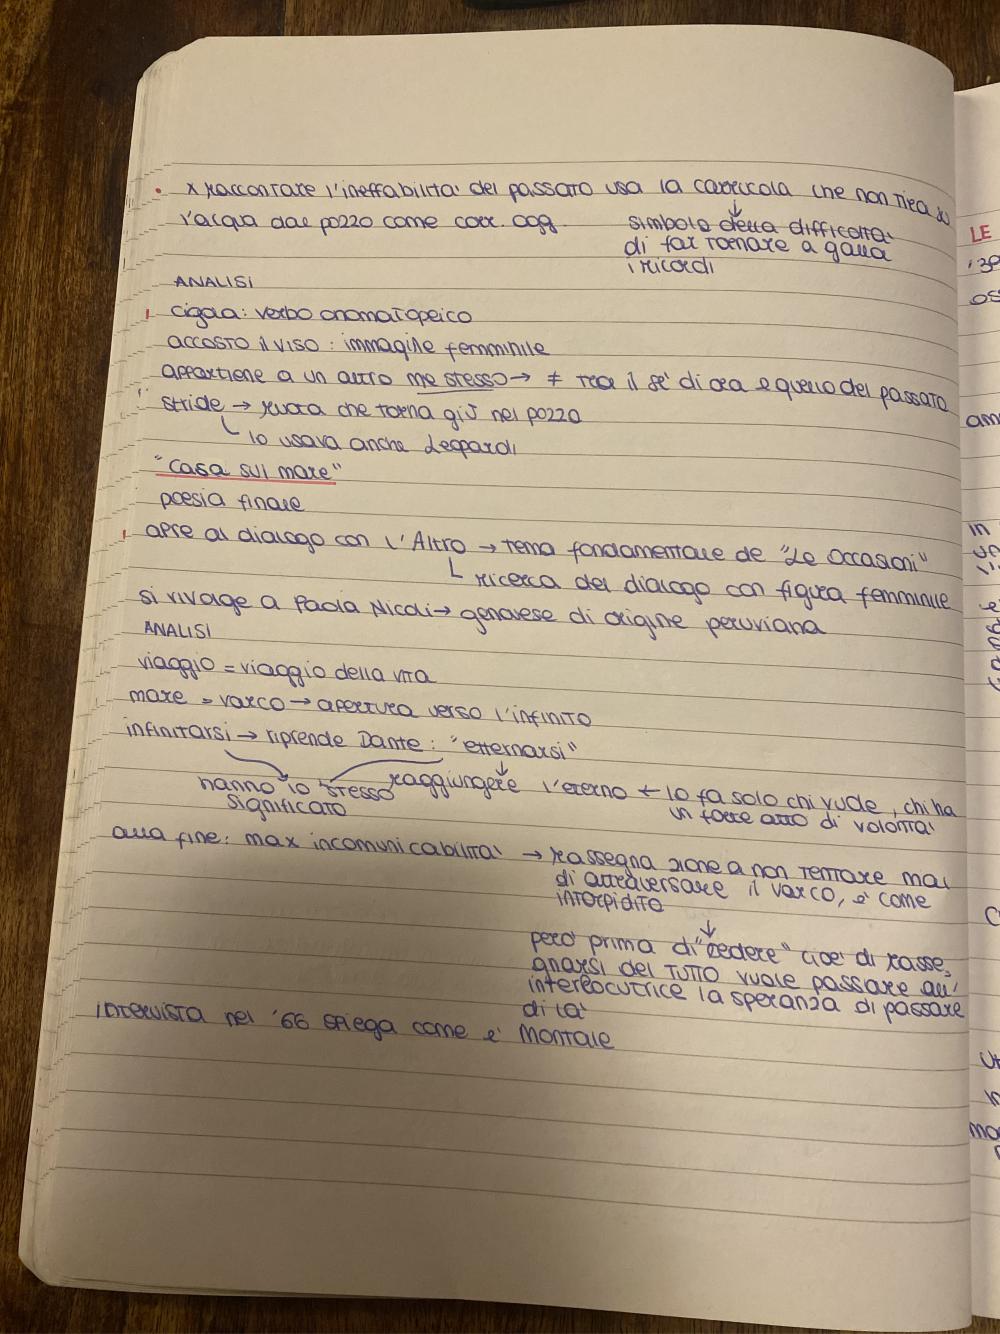 • x raccontare l'ineffabilità del passato usa la carrucola che non tira su
l'acqua dal pozzo come corr. ogg.
simbolo della difficoltà
di far tornare a galla
i ricordi
ANALISI
cigola: verbo onomatopeico
accosto il viso: immagine femminile
appartiene a un altro me stesso → ≠ tra il sé di ora e quello del passato
stride → ruota che torna giù nel pozzo
└ lo usava anche Leopardi
"casa sul mare"
poesia finale
apre al dialogo con l'Altro → tema fondamentale de "Le Occasioni"
└ ricerca del dialogo con figura femminile
si rivolge a Paola Nicoli → genovese di origine peruviana
ANALISI
viaggio = viaggio della vita
mare = varco → apertura verso l'infinito
infinitarsi → riprende Dante: "etternarsi"
hanno lo stesso
significato
raggiungere l'eterno ← lo fa solo chi vuole, chi ha
un forte atto di volontà
alla fine: max incomunicabilità → rassegnazione a non tentare mai
di attraversare il varco, è come
intorpidito
↓
però prima di "cedere" cioè di rasse,
gnarsi del TUTTO vuole passare all'
interlocutrice la speranza di passare
di là
intervista nel '66 spiega come è Montale
LE
os
am
in
un